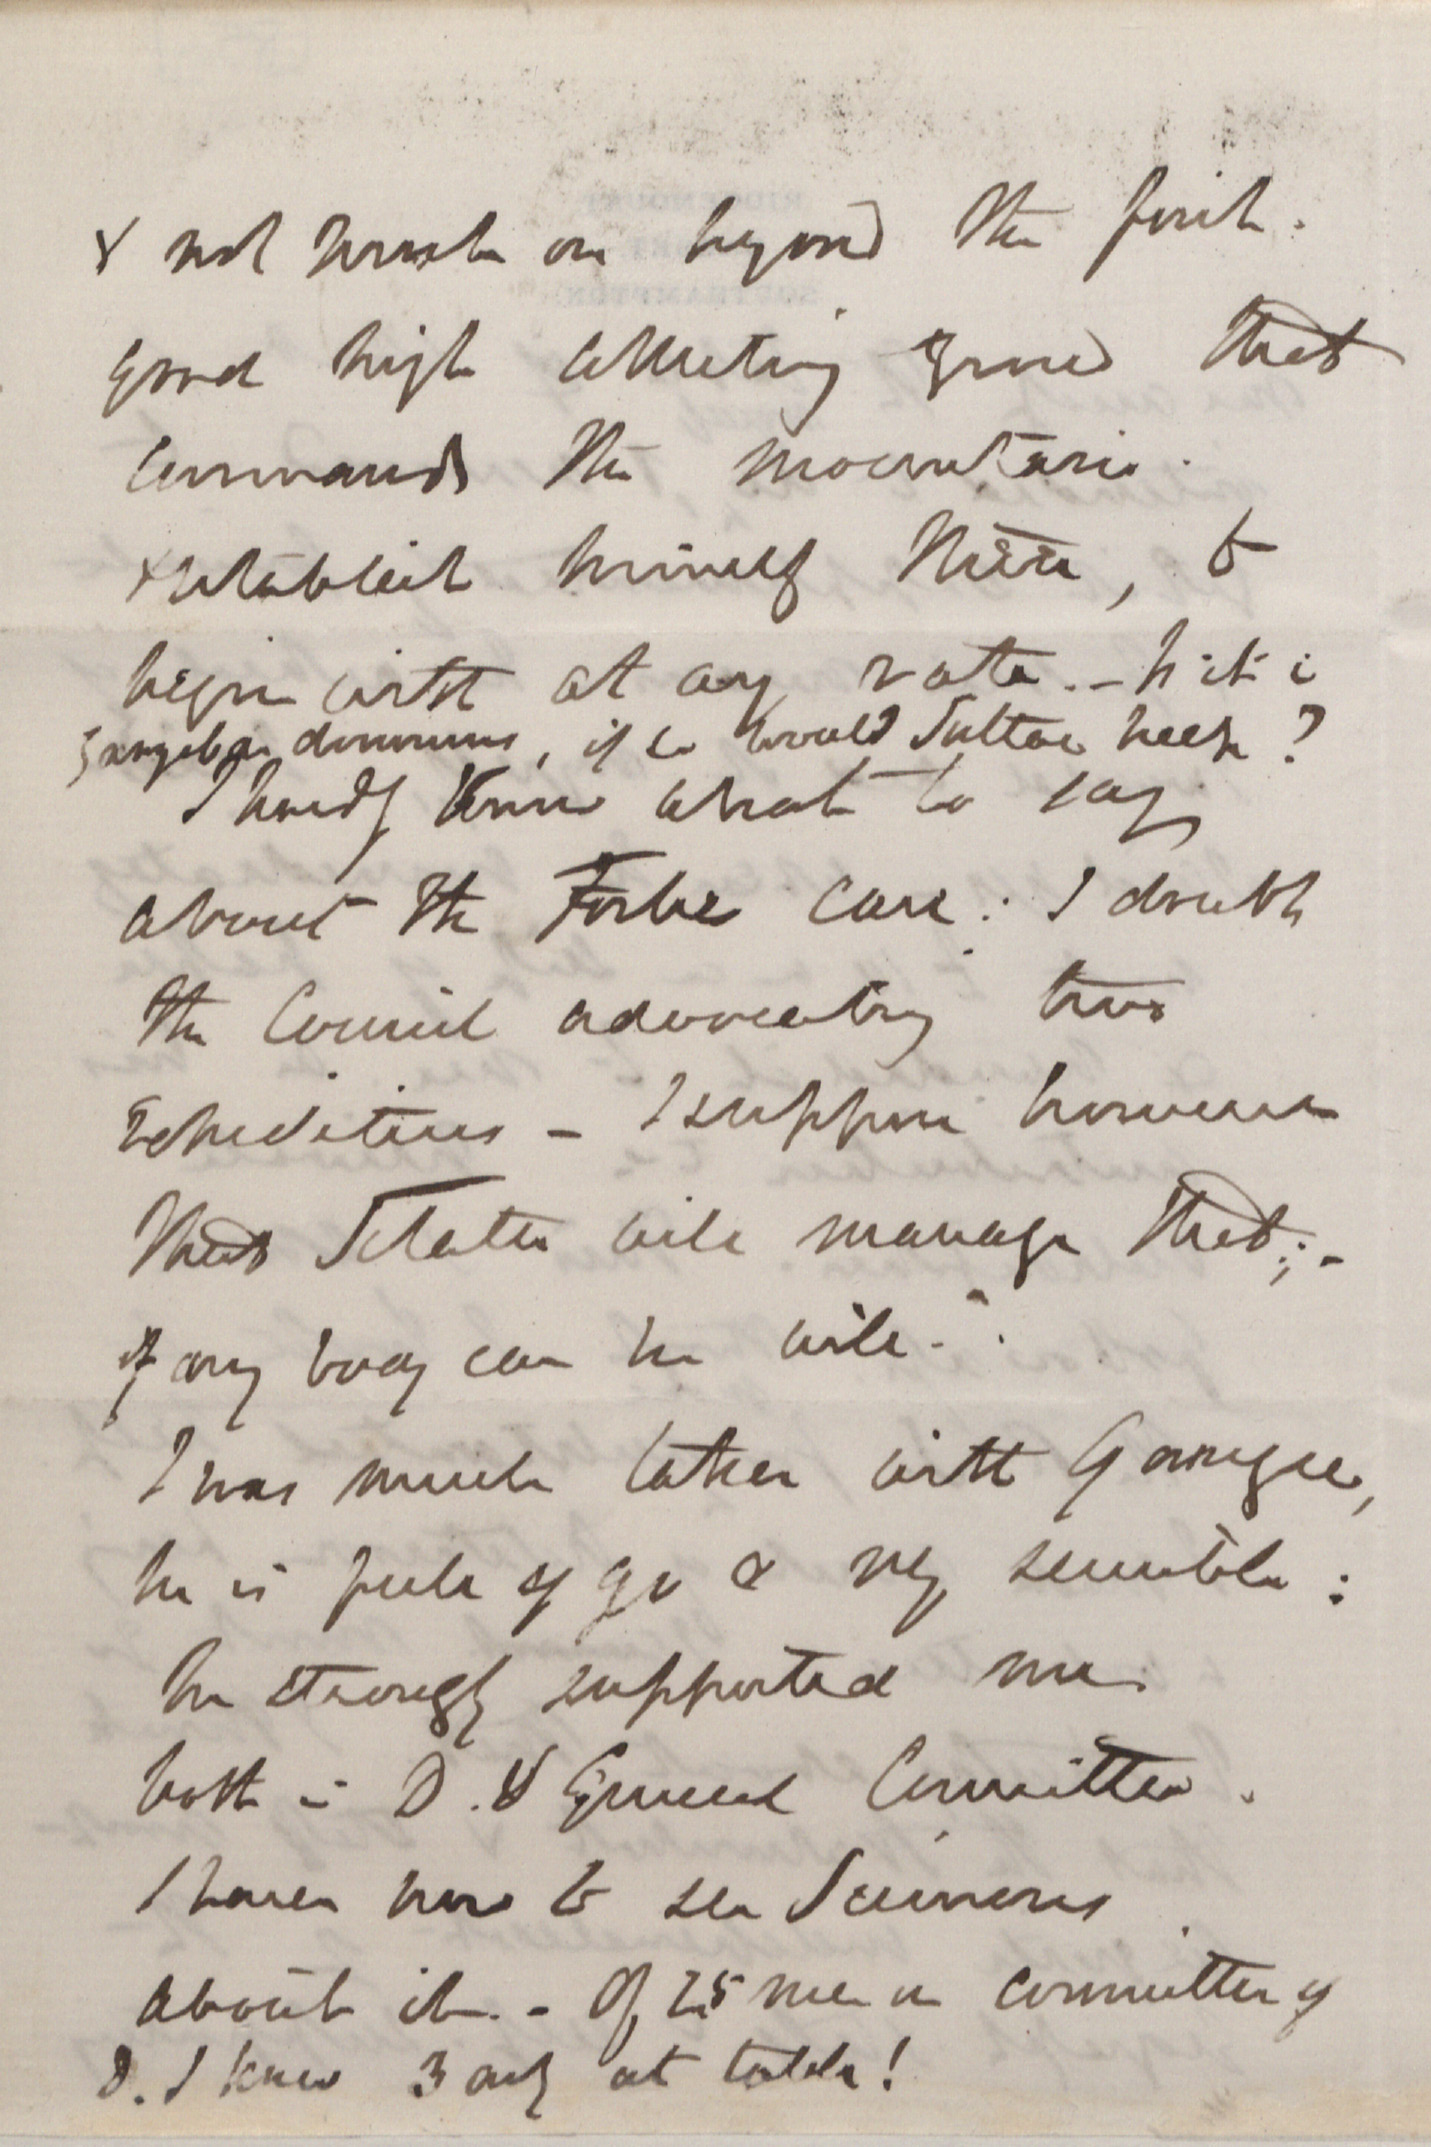 & not push on beyond the first
good high collecting ground that
commands the mountains.
& establish himself there, to
begin with at any rate. - Is it in
Zanzibar dominions, if so would Sultan help?
I hardly know what to say
about the Forbes case: I doubt
the Council advocating two
Expeditions - I suppose however
that Sclater will manage that; -
if any body can he will.
I was much taken with Gamgee,
he is full of go & very sensible:
he strongly supported me
both in D. & General Committee.
I have now to see Siemens
about it. - Of 25 men in committee of
D. I knew 3 only at table!